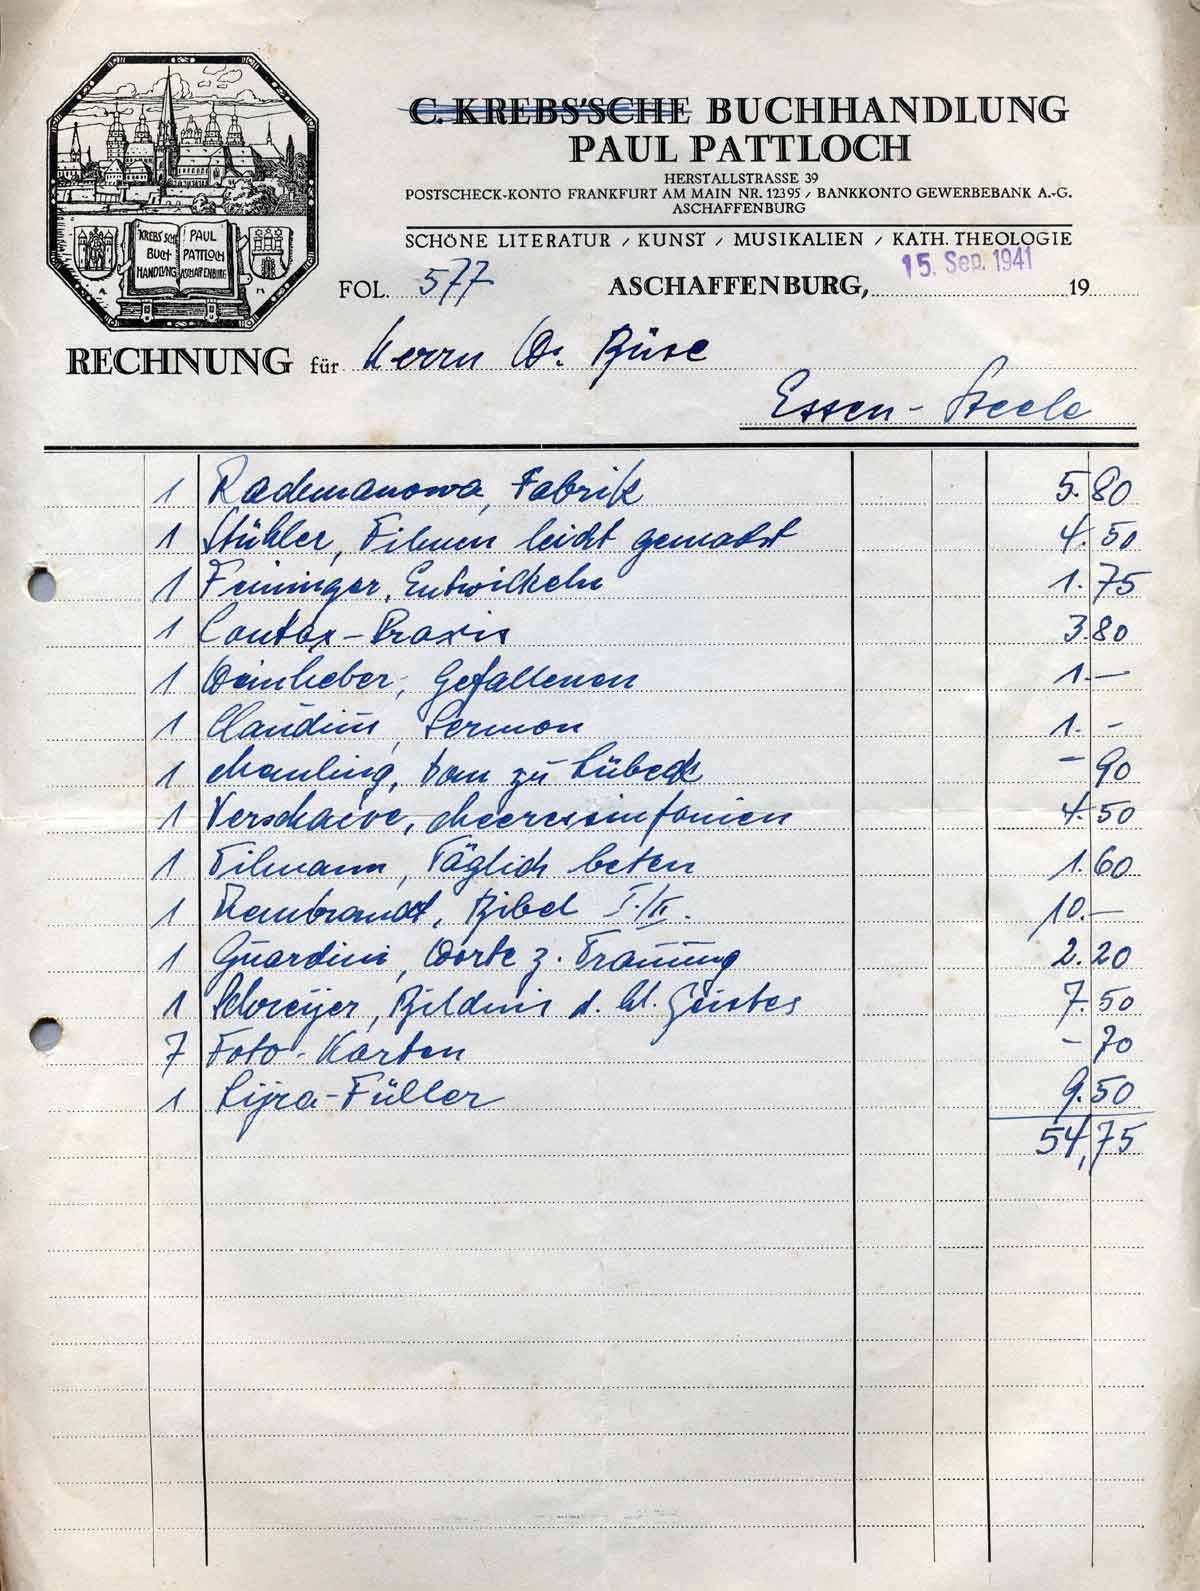 C. KREBS'SCHE BUCHHANDLUNG
PAUL PATTLOCH
HERSTALLSTRASSE 39
POSTSCHECK-KONTO FRANKFURT AM MAIN NR. 12395 / BANKKONTO GEWERBEBANK A.-G.
ASCHAFFENBURG
SCHÖNE LITERATUR / KUNST / MUSIKALIEN / KATH. THEOLOGIE
KREBS'SCHE BUCHHANDLUNG
PAUL PATTLOCH ASCHAFFENBURG
15. Sep. 1941
FOL. 577 ASCHAFFENBURG, 19
RECHNUNG für Herrn Dr.
Essen-Steele
1 Rademanowa, Fabrik 5.80
1 Stühler, Filmen leicht gemacht 4.50
1 Feininger, Entwickeln 1.75
1 Contax-Praxis 3.80
1 Weinheber, Gefallenen 1.—
1 Claudius, Sermon 1.-
1 Memling, Dom zu Lübeck -90
1 Verschaeve, Meeressinfonien 4.50
1 Tilmann, Täglich beten 1.60
1 Rembrandt, Bibel I./II. 10.—
1 Guardini, Worte z. Trauung 2.20
1 Schreijer, Bildnis d. hl. Geistes 7.50
7 Foto-Karten -70
1 Lyra-Füller 9.50
54,75